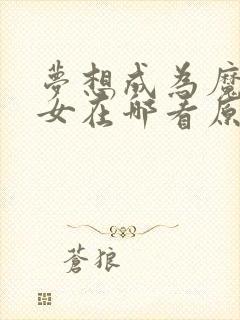 夢想成為魔
女在哪看原
蒼狼